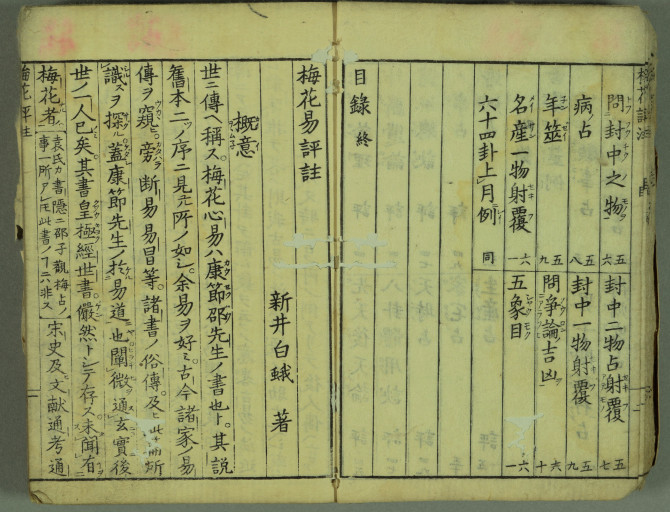 問封中之物 五六
封中二物占射覆 五七
病ノ占 五八
封中一物射覆 五九
年筮 五九
問争論吉凶 六十
名産一物射覆 六一
五象目 六一
六十四卦上ノ月例 同
目録終
梅花易評註
新井白蛾 著
概意
世ニ傳ヘ稱ス梅花心易ハ康節邵先生ノ書也ト其説
舊本二ノ序ニ見元所ノ如シ余易ヲ好ミ古今諸家ノ易
傳ヲ窺ヒ旁斷易易冒等諸書ノ俗傳及ヒ此
識スヲ探ル蓋康節先生ノ於易道也闡微通玄實後
世ノ一人已矣其書皇極經世書儼然トシテ存ス未聞有
梅花者
袁氏カ書隠ニ邵子觀梅占ノ
事一所アレ𪜈此書ノヿニハ非ス
宋史及文献通考通
梅花評註